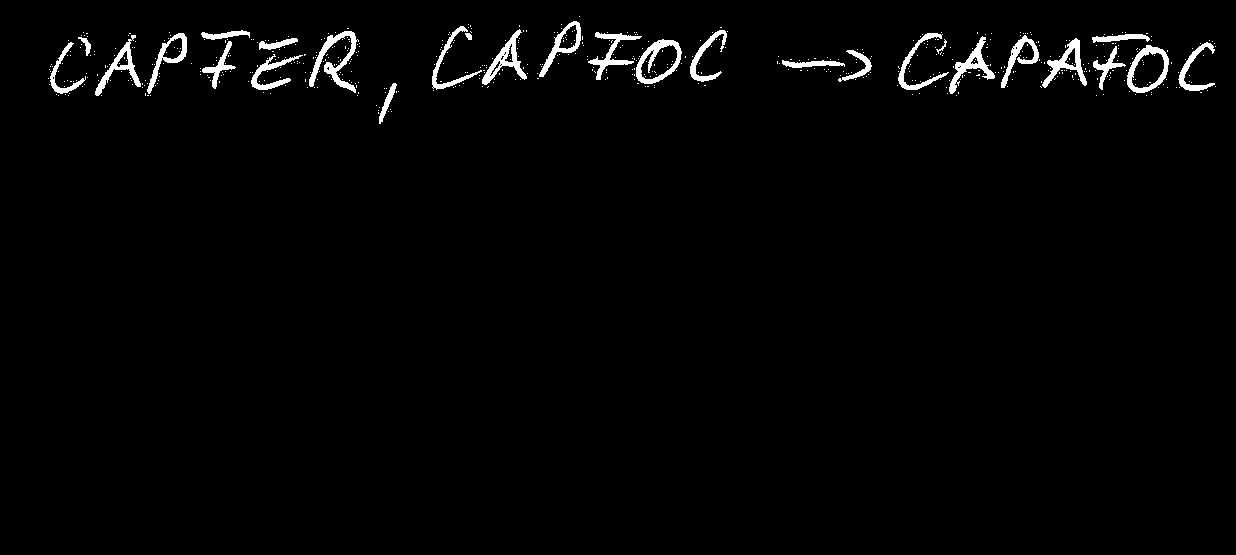 CAPFER, CAPFOC → CAPAFOC